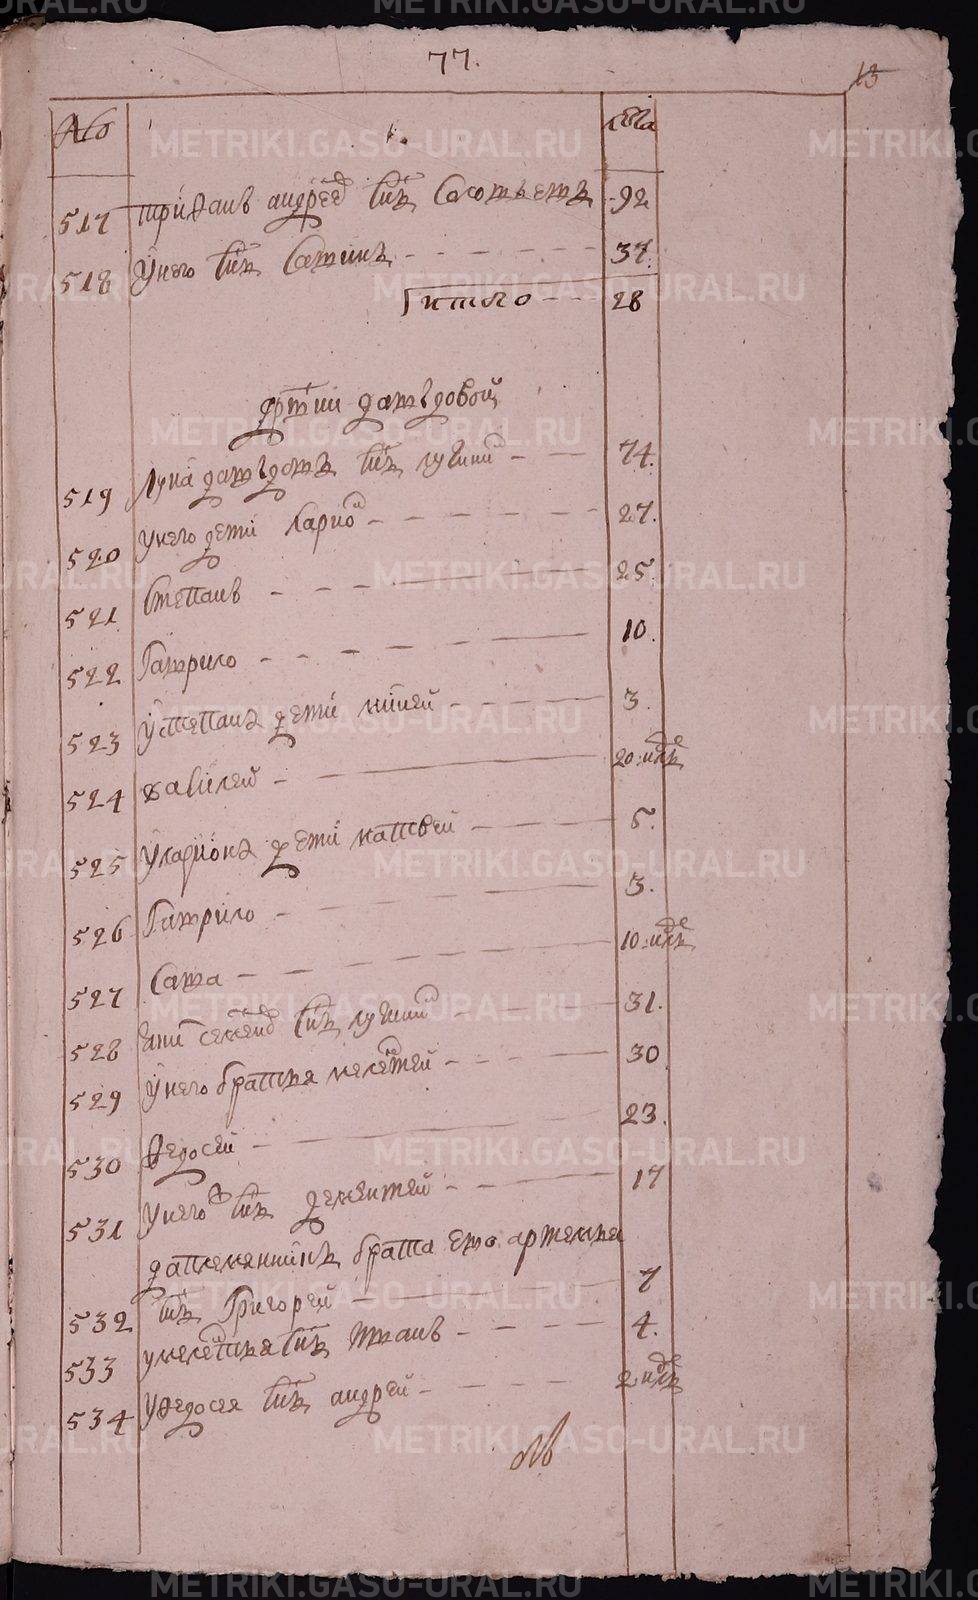 77.
13
№
1.
лѣта
517 трифанъ андрѣевъ снъ соловьевъ 92
518 У него снъ савинъ 37.
Итого 28
дртии давыдовой
519 Лука давыдовъ снъ лучнин 74.
520 У него дети Ларион 27.
521 Степанъ 25.
522 Гаврило 10.
523 У степана дети миней 3.
524 Савелей 20 нде
525 У лариона дети матвей 5.
526 Гаврило 3.
527 Сава 10 нде
528 семенъ снъ лучнин 31.
529 У него братья мелетей 30
530 Федосей 23.
531 У него снъ дементей 17
да племянникъ брата ево артемья
532 снъ Григорей 7
533 у мелетья снъ иванъ 4.
534 У федосея снъ андрей 2 нде
METRIKI.GASO-URAL.RU